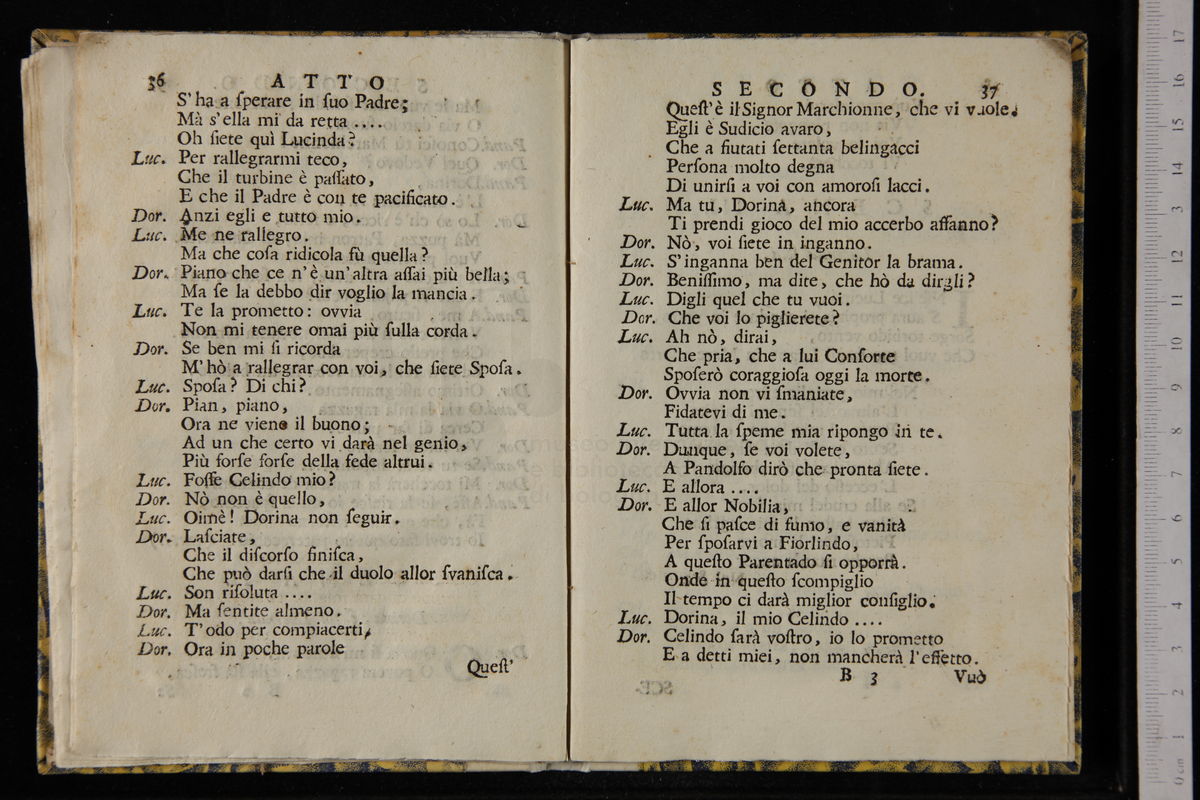 36 ATTO
S'ha a ſperare in ſuo Padre;
Mà s'ella mi da retta ....
Oh ſiete quì Lucinda?
Luc. Per rallegrarmi teco,
Che il turbine è paſſato,
E che il Padre è con te pacificato.
Dor. Anzi egli e tutto mio.
Luc. Me ne rallegro.
Ma che coſa ridicola fù quella?
Dor. Piano che ce n'è un'altra aſſai più bella;
Ma ſe la debbo dir voglio la mancia.
Luc. Te la prometto: ovvia
Non mi tenere omai più ſulla corda.
Dor. Se ben mi ſi ricorda
M'hò a rallegrar con voi, che ſiete Spoſa.
Luc. Spoſa? Di chi?
Dor. Pian, piano,
Ora ne viene il buono;
Ad un che certo vi darà nel genio,
Più forſe forſe della fede altrui.
Luc. Foſſe Celindo mio?
Dor. Nò non è quello,
Luc. Oimè! Dorina non ſeguir.
Dor. Laſciate,
Che il diſcorſo finiſca,
Che può darſi che il duolo allor ſvaniſca.
Luc. Son riſoluta ....
Dor. Ma ſentite almeno.
Luc. T'odo per compiacerti,
Dor. Ora in poche parole
Queſt'
SECONDO. 37
Queſt'è il Signor Marchionne, che vi vuole.
Egli è Sudicio avaro,
Che a fiutati ſettanta belingacci
Perſona molto degna
Di unirſi a voi con amoroſi lacci.
Luc. Ma tu, Dorina, ancora
Ti prendi gioco del mio accerbo affanno?
Dor. Nò, voi ſiete in inganno.
Luc. S'inganna ben del Genitor la brama.
Dor. Beniſſimo, ma dite, che hò da dirgli?
Luc. Digli quel che tu vuoi.
Dor. Che voi lo piglierete?
Luc. Ah nò, dirai,
Che pria, che a lui Conſorte
Spoſerò coraggioſa oggi la morte.
Dor. Ovvia non vi ſmaniate,
Fidatevi di me.
Luc. Tutta la ſpeme mia ripongo in te.
Dor. Dunque, ſe voi volete,
A Pandolfo dirò che pronta ſiete.
Luc. E allora ....
Dor. E allor Nobilia,
Che ſi paſce di fumo, e vanità
Per ſpoſarvi a Fiorlindo,
A queſto Parentado ſi opporrà.
Onde in queſto ſcompiglio
Il tempo ci darà miglior conſiglio.
Luc. Dorina, il mio Celindo ....
Dor. Celindo ſarà voſtro, io lo prometto
E a detti miei, non mancherà l'effetto.
B 3 Vuò